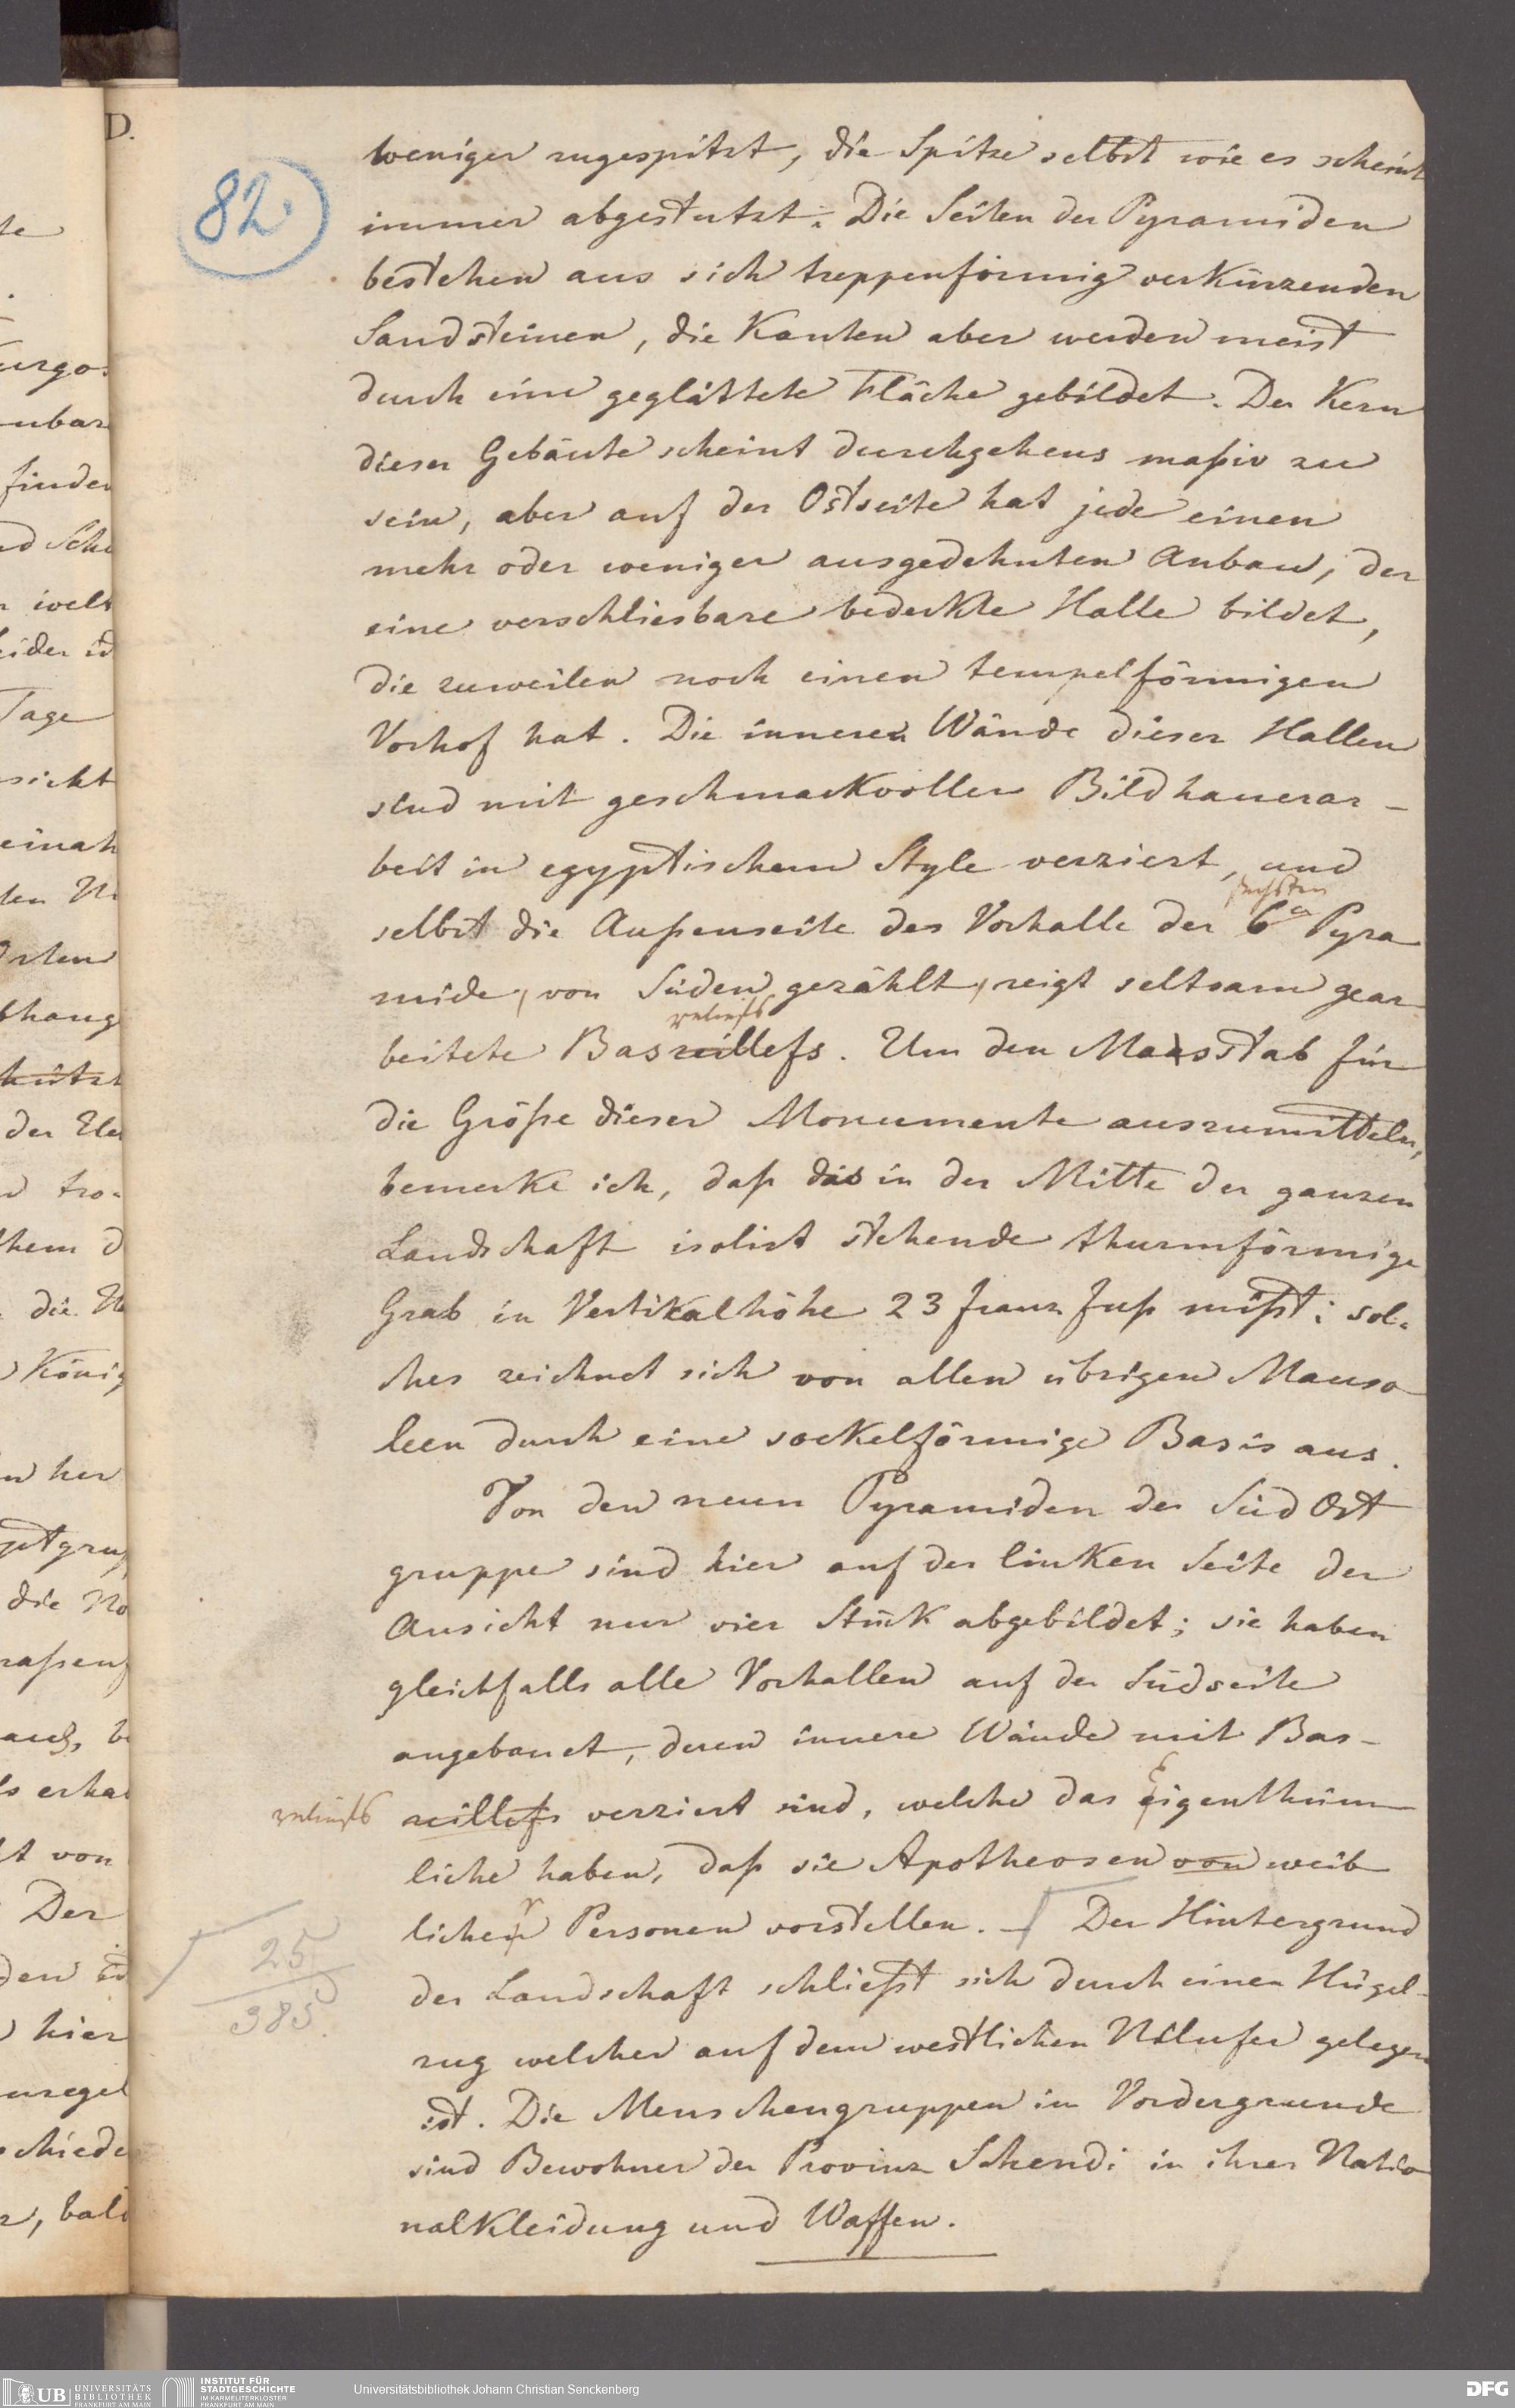 D.
82.
weniger zugespitzt, die Spitze selbst wie es scheint
immer abgestutzt. Die Seiten der Pyramiden
bestehen aus sich treppenförmig verkürzenden
Sandsteinen, die Kanten aber werden meist
durch eine geglättete Fläche gebildet. Der Kern
dieser Gebäute scheint durchgehens maßiv zu
sein, aber auf der Ostseite hat jede einen
mehr oder weniger ausgedehnten Anbau, der
eine verschliesbare bedeckte Halle bildet,
die zuweilen noch einen tempelförmigen
Vorhof hat. Die inneren Wände dieser Hallen
sind mit geschmackvoller Bildhauerar-
beit in egyptischem Style verziert, und
sechsten
selbst die Außenseite des Vorhalle der 6n Pyra
mide, von Süden gezählt, zeigt seltsam gear
reliefs
beitete Basreillefs. Um den Maasstab für
die Größe dieser Monumente auszumitteln,
bemerke ich, daß das in der Mitte der ganzen
Landschaft isolirt stehende thurmförmige
Grab in Vertikalhöhe 23 franz Fuß mißt; sol-
ches zeichnet sich von allen übrigen Mauso
leen durch eine sockelförmige Basis aus.
Von den neun Pyramiden der Süd Ost
gruppe sind hier auf der linken Seite der
Ansicht nur vier Stük abgebildet; sie haben
gleichfalls alle Vorhallen auf der Südseite
angebauet, deren innere Wände mit Bas-
reliefs reillefs verziert sind, welche das Eigenthüm
liche haben, daß sie Apotheosen von weib
licher Personen vorstellen. Der Hintergrund
25
385.
der Landschaft schließt sich durch einen Hügel-
zug welcher auf dem westlichen Nilufer gelegen
ist. Die Menschengruppen im Vordergrunde
sind Bewohner der Provinz Schendi in ihrer Natio
nalkleidung und Waffen.
UB UNIVERSITÄTS BIBLIOTHEK FRANKFURT AM MAIN
INSTITUT FÜR STADTGESCHICHTE IM KARMELITERKLOSTER FRANKFURT AM MAIN
Universitätsbibliothek Johann Christian Senckenberg
DFG